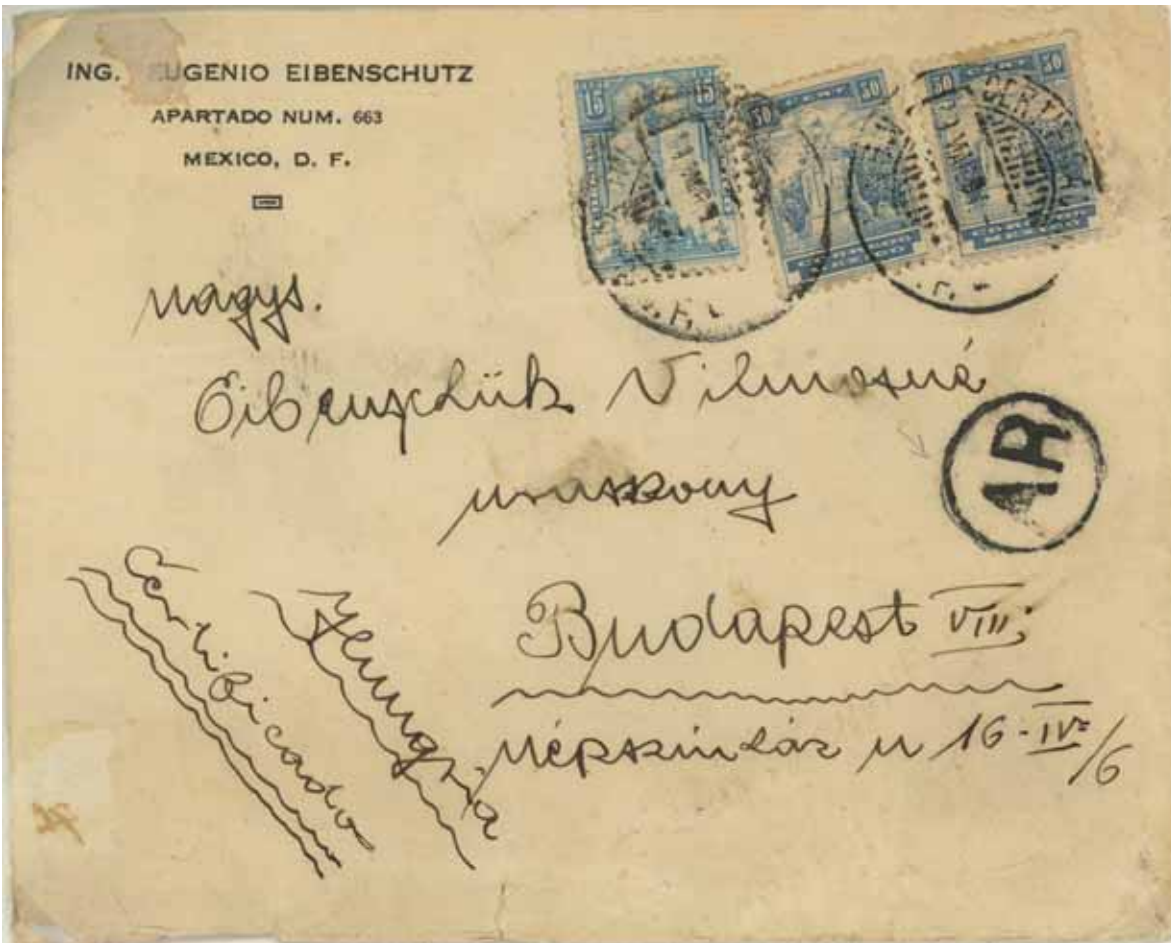 ING. EUGENIO EIBENSCHUTZ
APARTADO NUM. 663
MEXICO, D. F.
15 15
50 50
50 50
nagys.
Eibenschütz Vilmosné
urasszony
Budapest VIII.
népszinház u 16-IV=/6
Certificado
Hungria
AR